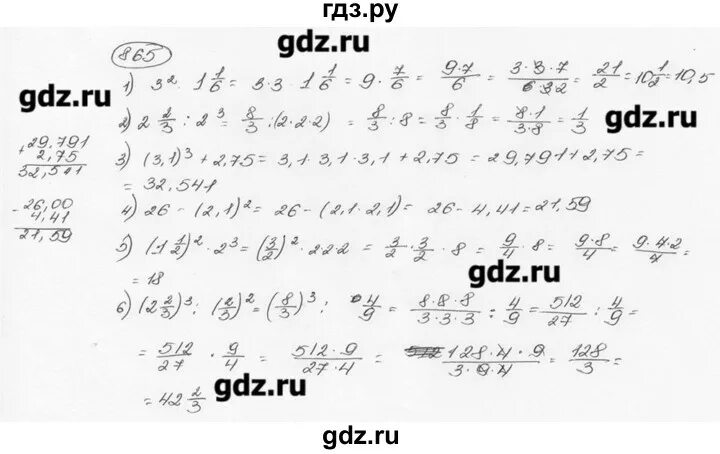 гдз.ру
865
gdz.ru
1) 3² · 1 1/6 = 3·3·1 1/6 = 9 · 7/6 = 9·7/6 = 3·3·7/6 3 2 = 21/2 = 10 1/2 = 10,5
gdz.ru
2) 2 2/3 : 2³ = 8/3 : (2·2·2) = 8/3 : 8 = 8/3 · 1/8 = 8·1/3·8 = 1/3
gdz.ru
+ 29,791
2,75
32,541
3) (3,1)³ + 2,75 = 3,1 · 3,1 · 3,1 + 2,75 = 29,791 + 2,75 =
= 32,541
- 26,00
4,41
21,59
4) 26 - (2,1)² = 26 - (2,1 · 2,1) = 26 - 4,41 = 21,59
5) (1 1/2)² · 2³ = (3/2)² · 2·2·2 = 3/2 · 3/2 · 8 = 9/4 · 8 = 9·8/4 = 9·4·2/4 =
= 18
gdz.ru
6) (2 2/3)³ : (2/3)² = (8/3)³ : 4/9 = 8·8·8/3·3·3 : 4/9 = 512/27 : 4/9 =
= 512/27 · 9/4 = 512·9/27·4 = 128·4·9/3·9·4 = 128/3 =
= 42 2/3
gdz.ru
gdz.ru
gdz.ru